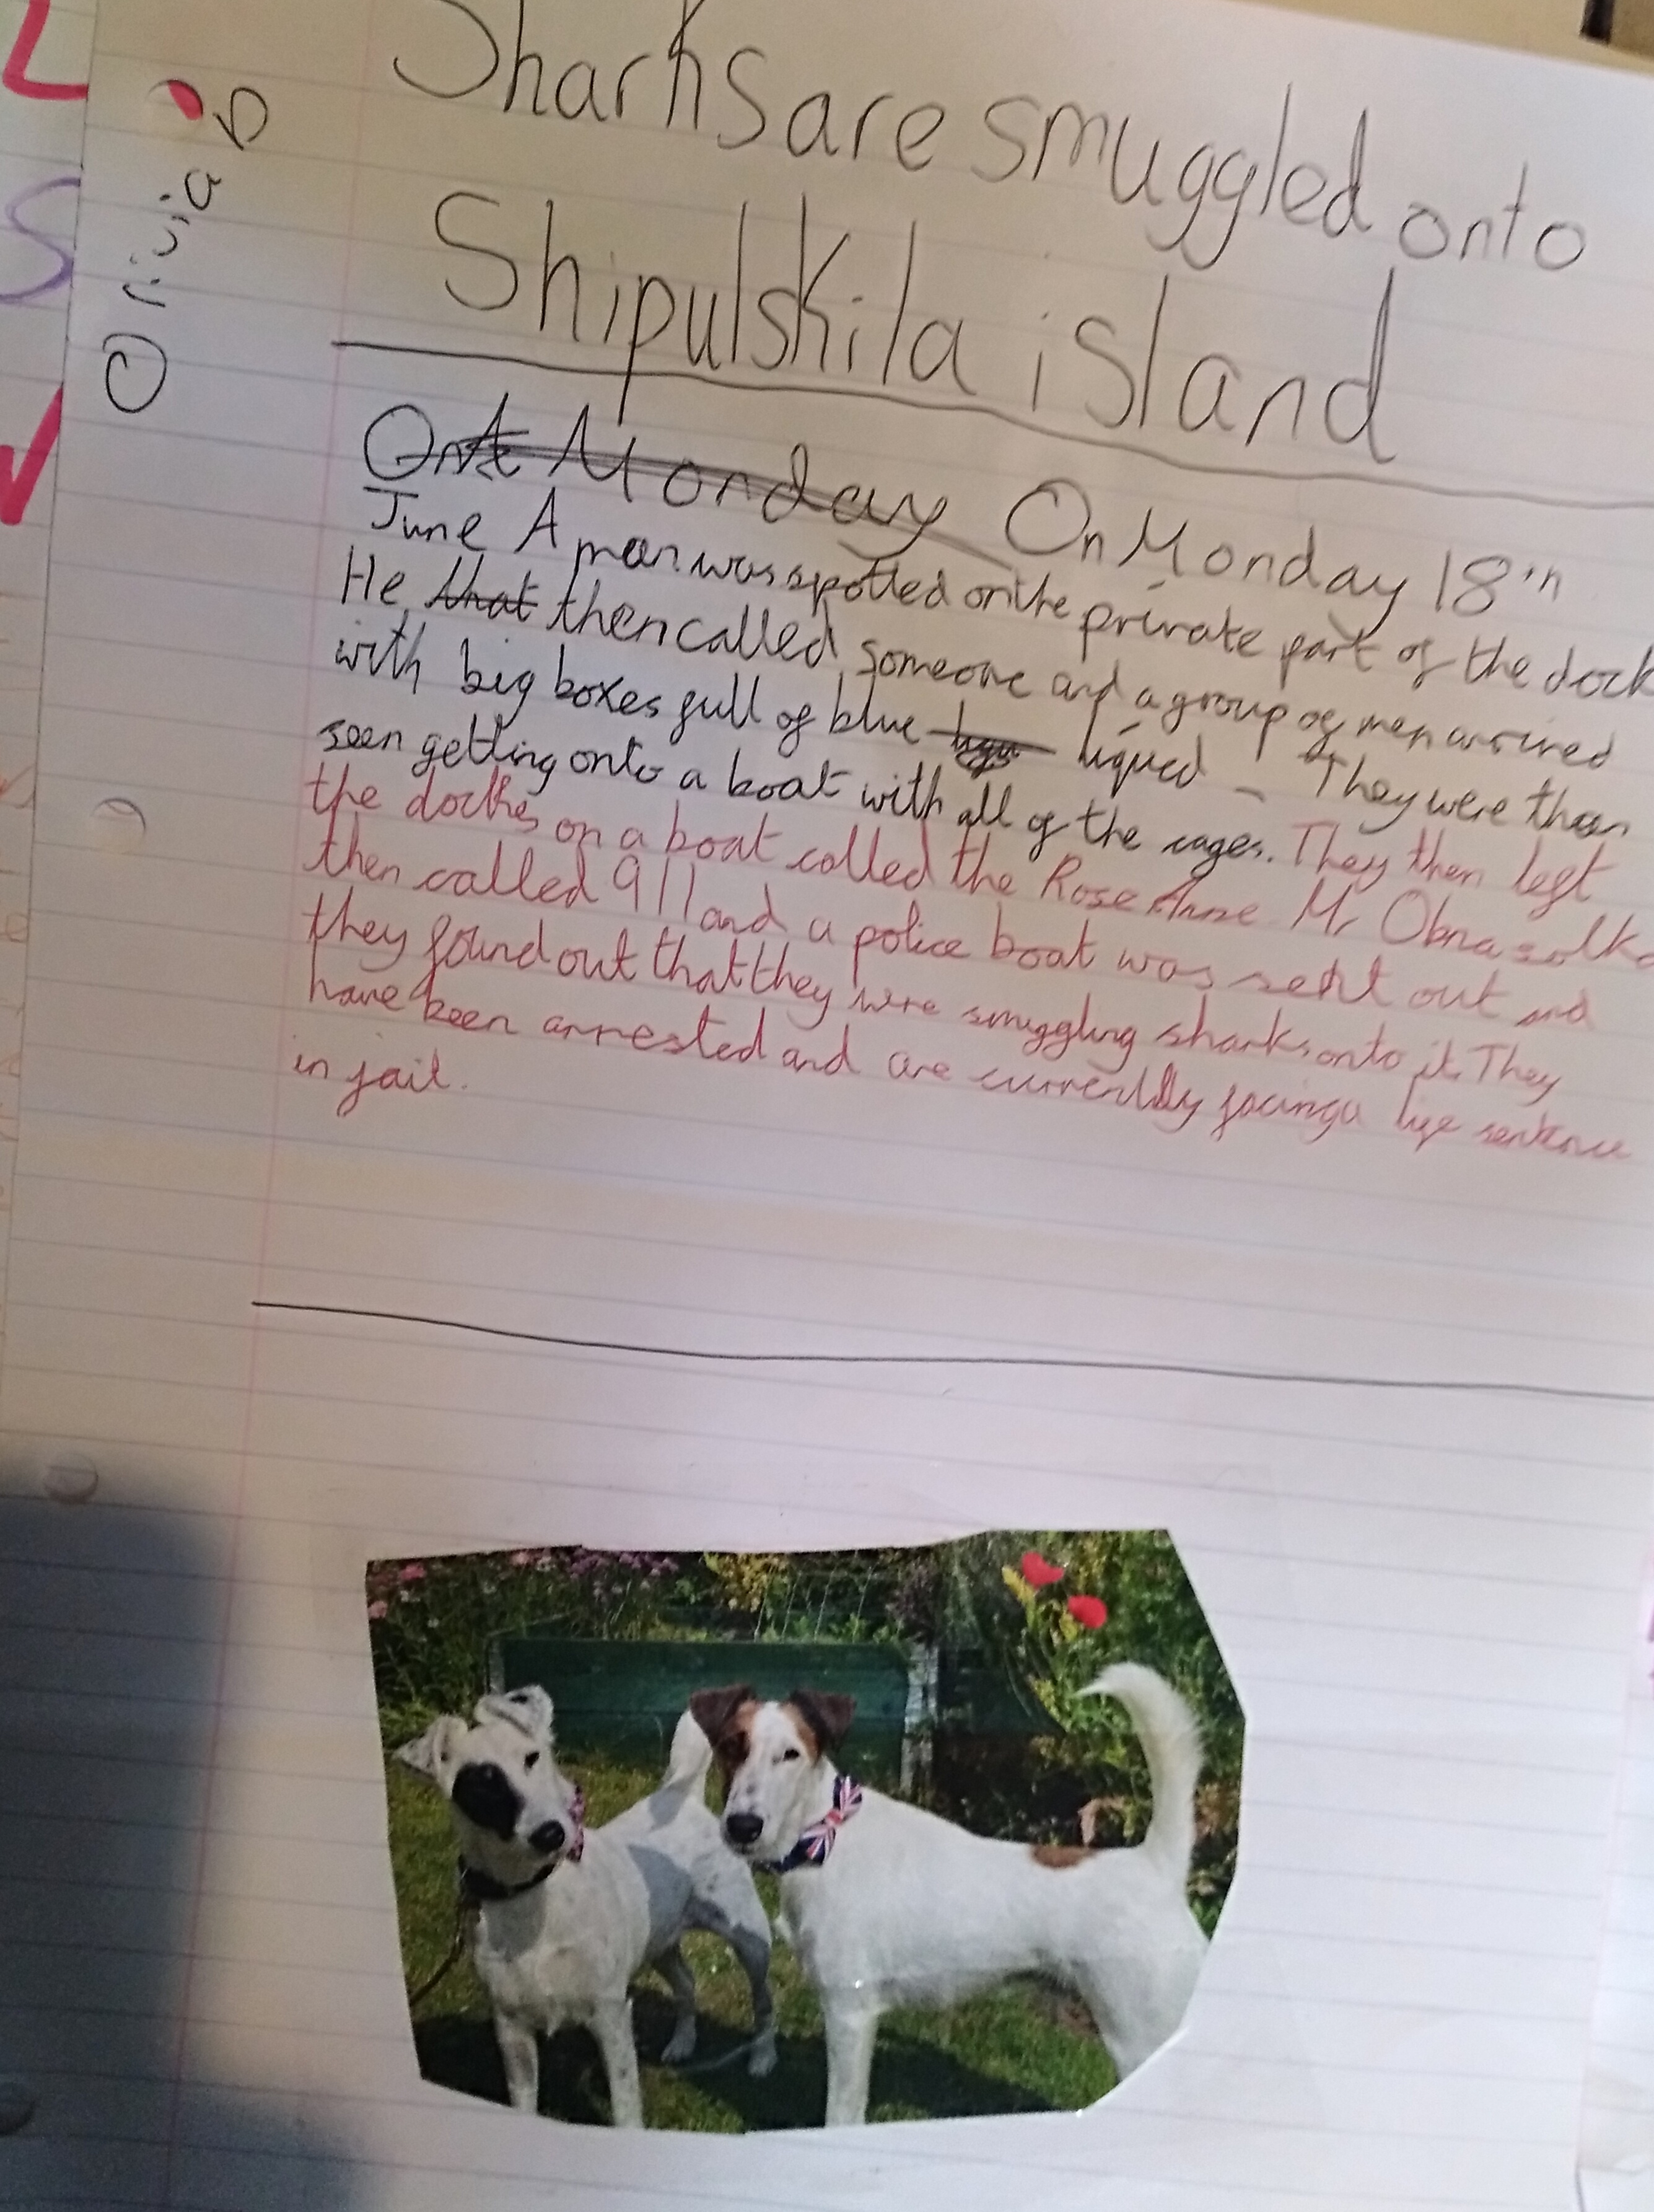 Sharks are smuggled onto
Shipulskila island
Olivia D
On Monday On Monday 18th
June A man was spotted on the private part of the dock
He that then called someone and a group of men arrived
with big boxes full of blue liqued - They were then
seen getting onto a boat with all of the cages. They then left
the docks on a boat called the Rose Anne Mr
then called 911 and a police boat was sent out and
they found out that they were smuggling sharks onto it. They
have been arrested and are currently facing a life sentence
in jail.